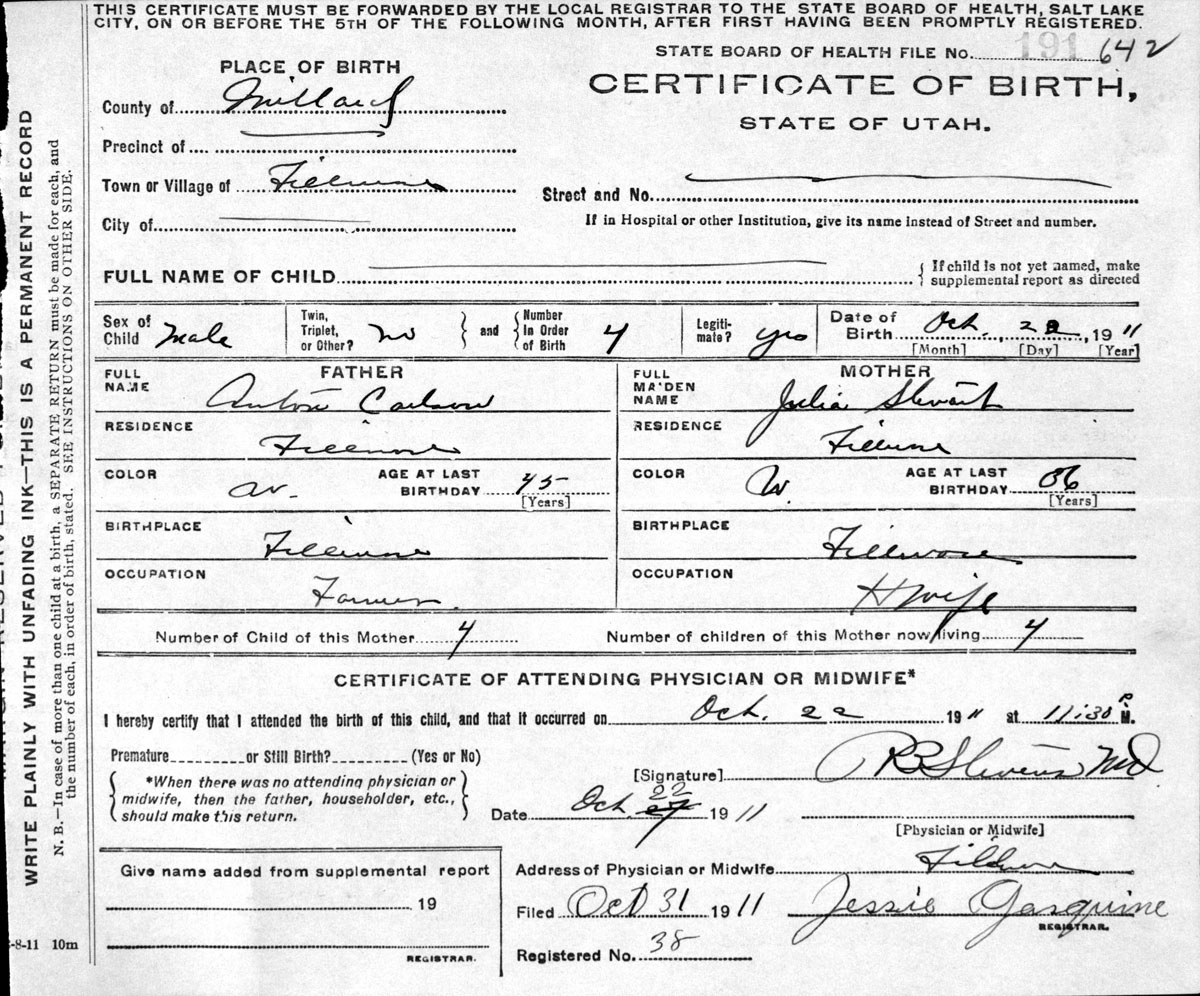 THIS CERTIFICATE MUST BE FORWARDED BY THE LOCAL REGISTRAR TO THE STATE BOARD OF HEALTH, SALT LAKE
CITY, ON OR BEFORE THE 5TH OF THE FOLLOWING MONTH, AFTER FIRST HAVING BEEN PROMPTLY REGISTERED.
STATE BOARD OF HEALTH FILE No. 191 642
PLACE OF BIRTH
CERTIFICATE OF BIRTH,
STATE OF UTAH.
County of Millard
Precinct of
Town or Village of Fillmore
Street and No.
City of
If in Hospital or other Institution, give its name instead of Street and number.
FULL NAME OF CHILD
{ If child is not yet named, make
supplemental report as directed
Sex of
Child Male
Twin,
Triplet,
or Other? no
} and {
Number
in Order
of Birth 4
Legiti-
mate? yes
Date of
Birth Oct. 22, 1911
[Month] [Day] [Year]
FATHER
FULL
NAME Carlson
RESIDENCE Fillmore
COLOR W.
AGE AT LAST
BIRTHDAY 45
[Years]
BIRTHPLACE Fillmore
OCCUPATION Farmer
MOTHER
FULL
MAIDEN
NAME Julia Stewart
RESIDENCE Fillmore
COLOR W.
AGE AT LAST
BIRTHDAY 36
[Years]
BIRTHPLACE Fillmore
OCCUPATION H wife
Number of Child of this Mother 4
Number of children of this Mother now living 4
CERTIFICATE OF ATTENDING PHYSICIAN OR MIDWIFE*
I hereby certify that I attended the birth of this child, and that it occurred on Oct. 22 1911 at 11:30 P M.
Premature or Still Birth? (Yes or No)
{ *When there was no attending physician or
midwife, then the father, householder, etc.,
should make this return. }
[Signature] Stevens MD
Date Oct. 22 1911
[Physician or Midwife]
Address of Physician or Midwife Fillmore
Filed Oct 31 1911 Jessie
REGISTRAR.
Registered No. 38
Give name added from supplemental report
19
REGISTRAR.
-8-11 10m
WRITE PLAINLY WITH UNFADING INK—THIS IS A PERMANENT RECORD
N. B.—In case of more than one child at a birth, a SEPARATE RETURN must be made for each, and
the number of each, in order of birth, stated. SEE INSTRUCTIONS ON OTHER SIDE.